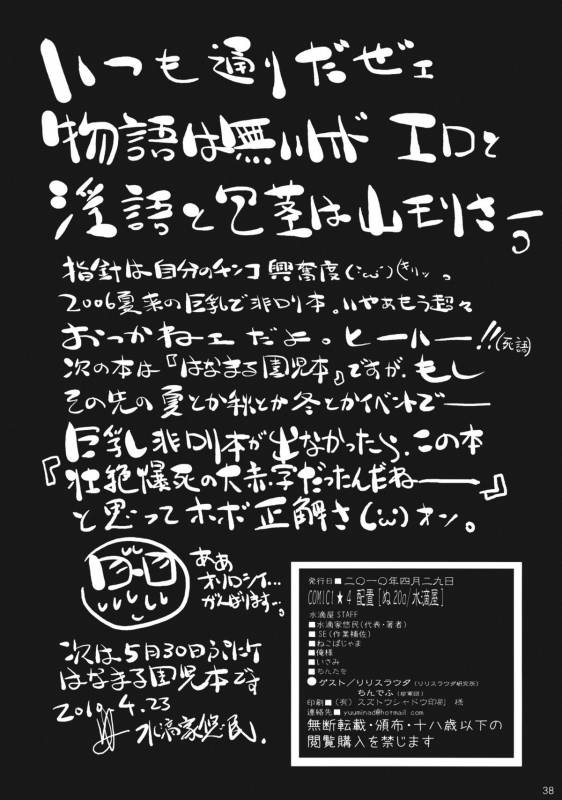 いつも通りだぜェ
物語は無いけど エロと
淫語と包茎は山モリさ。
指針は自分のチンコ興奮度(`・ω・´)(キリッ)。
2006夏来の巨乳で非ロリ本。いやぁもう超々
おっかねェだよ。ヒーハー!!(死語)
次の本は『はなまる園児本』ですが、もし
その先の夏とか秋とか冬とかイベントで――
巨乳し非ロリ本が出なかったら、この本
『壮絶爆死の大赤字だったんだねーー』
と思ってホボ正解さ(´・ω・`)オン。
ああ
オソロシイ…
がんばります…。
次は5月30日ぷにけ
はなまる園児本です
2010.4.23
水滴家悠民.
発行日■二〇一〇年四月二九日
COMIC1★4 配置[ぬ20a/水滴屋]
水滴屋 STAFF
■水滴家悠民(代表・著者)
■SE(作業補佐)
■ねこぱじゃま
■俺様
■いさみ
■ちんたを
●ゲスト/リリスラウダ(リリスラウダ研究所)
ちんでふ
印刷■(有)スズトウシャドウ印刷 様
連絡先■yuuminad@hotmail.com
無断転載・頒布・十八歳以下の
閲覧購入を禁じます
38